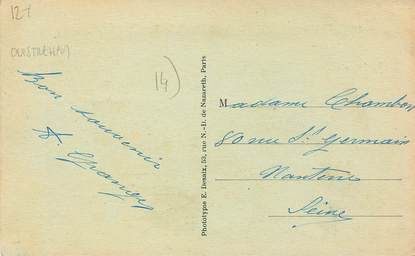 12-
OUISTREHAM
14)
Bon souvenir
Phototypie E. Desaix, 53, rue N.-D. de Nazareth, Paris
Madame Chambon
80 rue St Germain
Nanterre
Seine